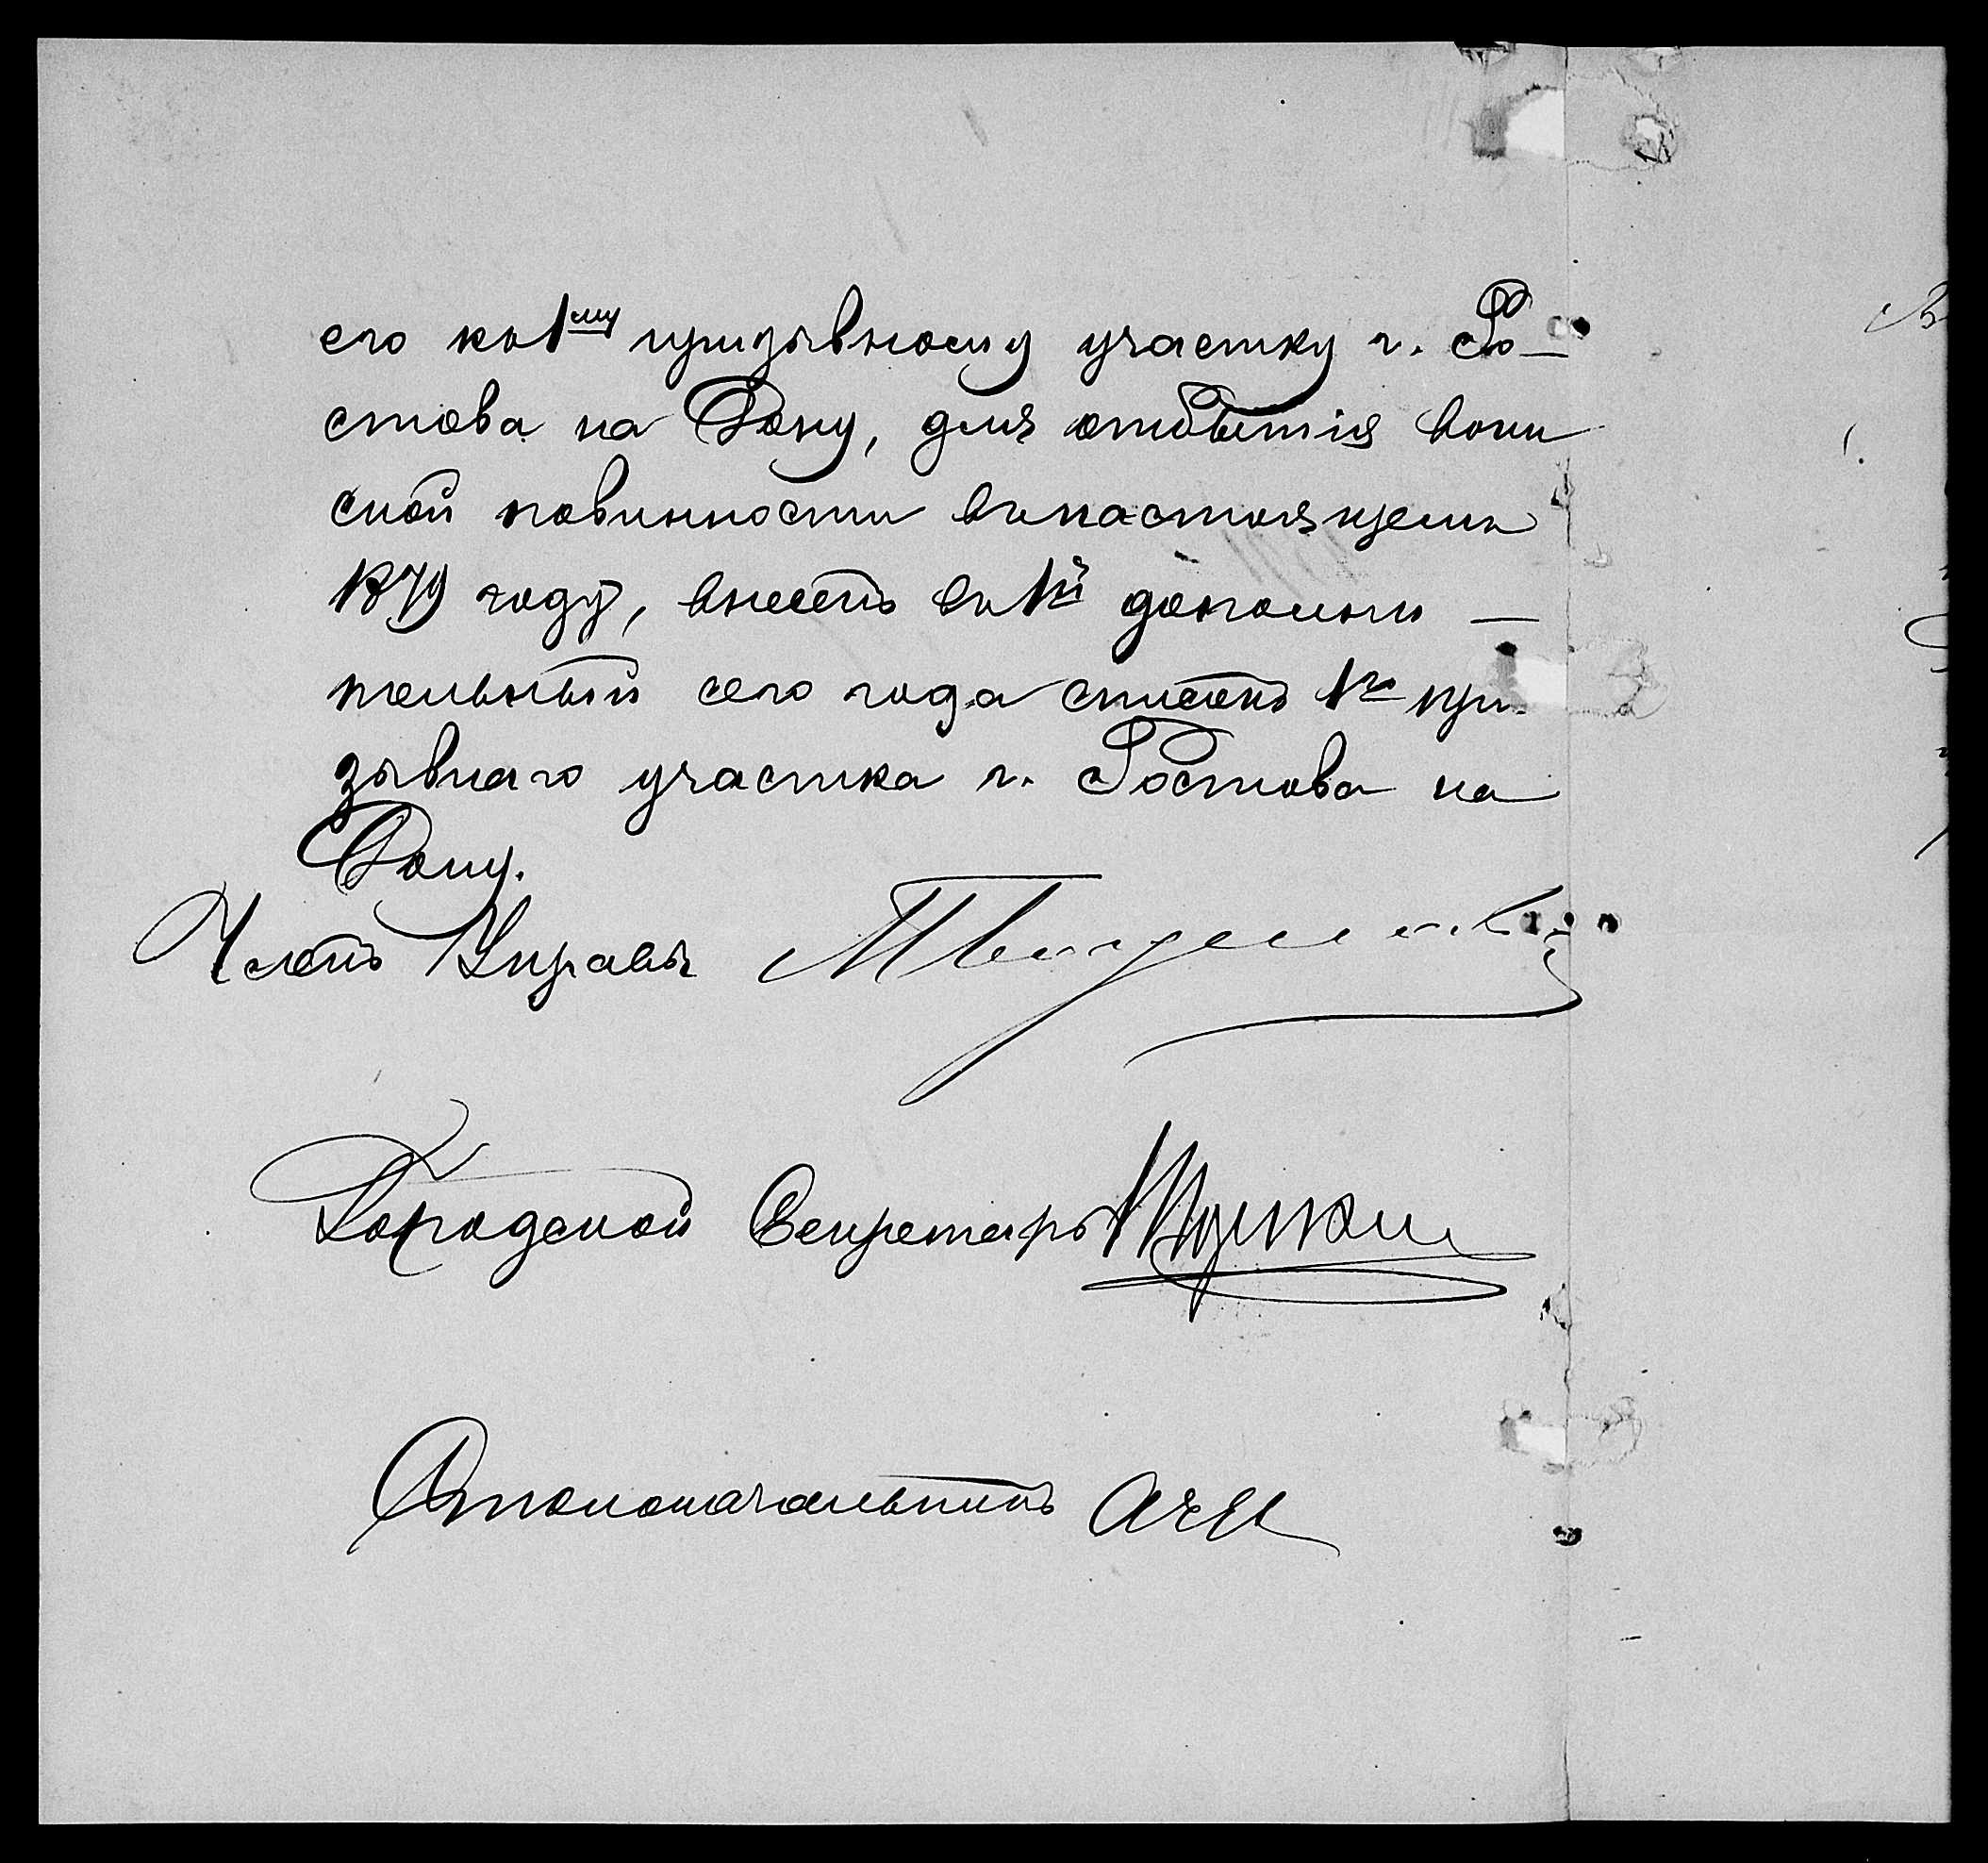 его къ 1му призывному участку г. Ро-
стова на Дону, для отбытія воин
ской повинности въ настоящемъ
1879 году, внесенъ въ 1й дополни -
тельный сего года списокъ 1го при-
зывнаго участка г. Ростова на
Дону.
Членъ Управы
Городской Секретарь
Столоначальникъ